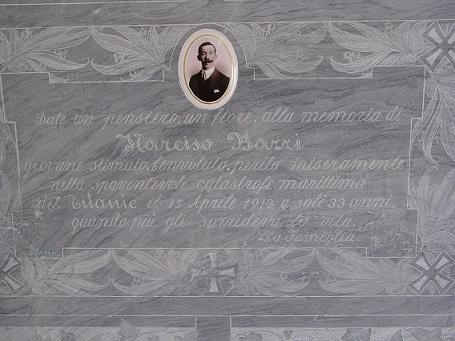 Date un pensiero, un fiore, alla memoria di
Narciso Bazzi
giovane stimato, benvoluto, perito miseramente
nella spaventevole catastrofe marittima
del Titanic il 15 Aprile 1912 a soli 33 anni,
quando più gli sorrideva la vita.
La Famiglia